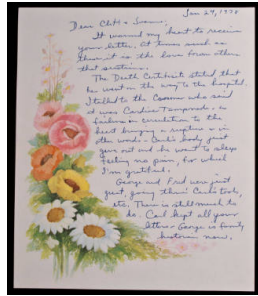 Jan 29, 1998
Dear Cliff & Susanne:
It warmed my heart to receive
your letter. At times such as
these it is the love from others
that sustains.
The Death Certificate stated that
he went on the way to the hospital.
I talked to the Coroner who said
it was Cardiac Tamponade: a
failure in circulation to the
heart bringing a rupture or in
other words - Carl's body just
gave out and he went to sleep
feeling no pain, for which
I'm gratified.
George and Fred were just
great, going thru Carl's tools,
etc. There is still much to
do. Carl kept all your
letters. George is family
historian now.